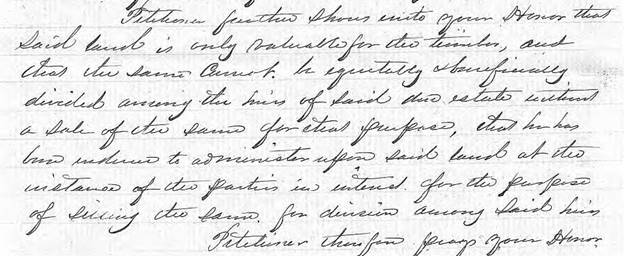 Petitioner further shows unto your Honor that
said land is only valuable for the timber, and
that the same cannot be equitably & beneficially
divided among the heirs of said estate without
a sale of the same for that purpose, that he has
been induce to administer upon said land at the
instance of the parties in interest for the purpose
of selling the same for division among said heirs
Petitioner therefore prays your Honor